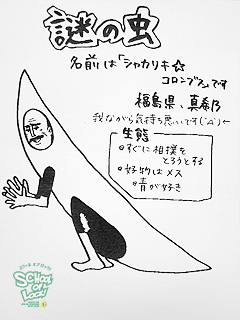 謎の虫
名前は「シャカリキ☆
コロンブス」です
福島県、真希乃
我ながら気持ち悪いです(´Д`)←
生態
・すぐに相撲を
とろうとする
・好物はメス
・青が好き
SCHOOL
OF
LOCK!